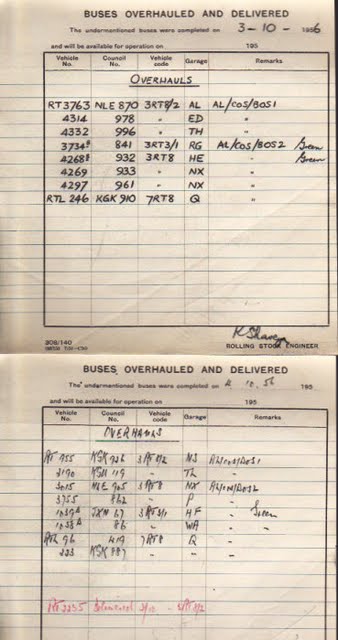 BUSES OVERHAULED AND DELIVERED
The undermentioned buses were completed on 3-10- 1956
and will be available for operation on 195
Vehicle No. Council No. Vehicle code Garage Remarks
OVERHAULS
RT3763 NLE 870 3RT8/2 AL AL/COS/BOS1
4314 978 " ED "
4332 996 " TH "
3734 841 3RT3/1 RG AL/COS/BOS2 Green
4268 932 3RT8 HE " Green
4269 933 " NX "
4297 961 " NX "
RTL 246 KGK 910 7RT8 Q "
308/140
ROLLING STOCK ENGINEER
BUSES OVERHAULED AND DELIVERED
The undermentioned buses were completed on 4. 10. 56 195
and will be available for operation on 195
Vehicle No. Council No. Vehicle code Garage Remarks
OVERHAULS
RT 955 3RT8/2
3190 119 " TL "
3015 NLE 905 3RT8 NX
3755 862 " P "
JXN 67 3RT3/1 HF " Green
86 " WA " "
RTL 96 419 7RT8 Q "
223 KGK 887 " " "
RT 2255